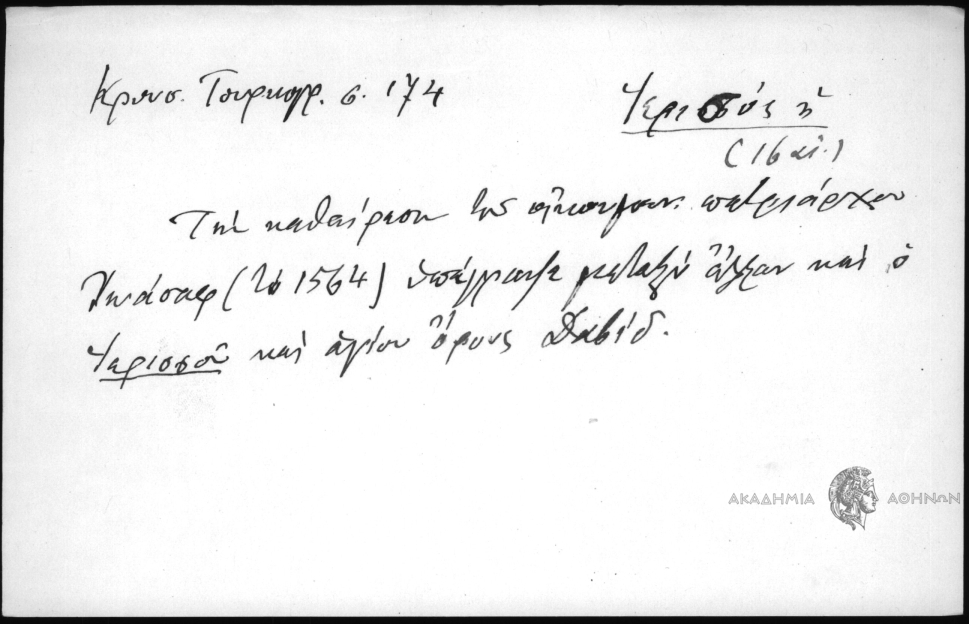 Κρουσ. Τουρκογρ. σ. 174
Ἱερισσός ἡ
(16 αἰ.)
Τὴν καθαίρεσιν τοῦ οἰκουμεν. πατριάρχου
Ἰωάσαφ (τὸ 1564) ὑπέγραψε μεταξὺ ἄλλων καὶ ὁ
Ἱερισσοῦ καὶ ἁγίου ὄρους Δαβίδ.
ΑΚΑΔΗΜΙΑ ΑΘΗΝΩΝ